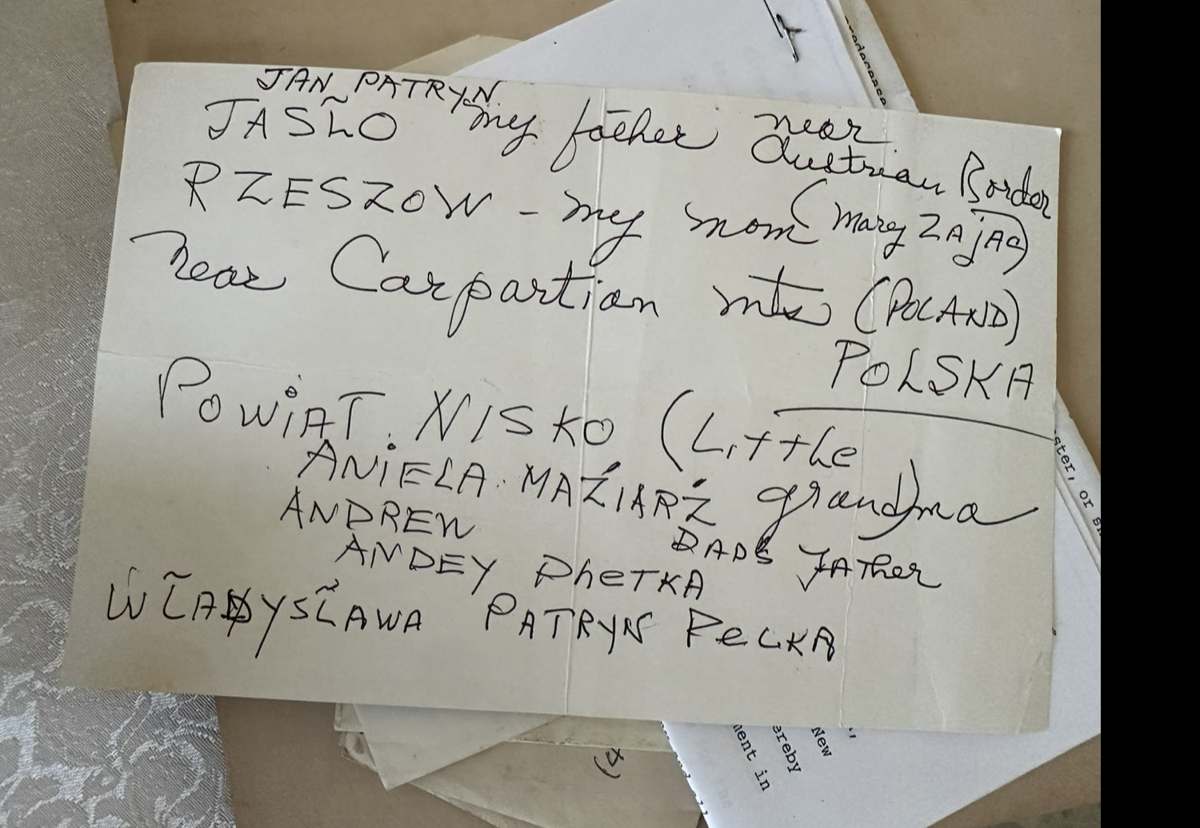 JAN PATRYN
JASŁO my father near
Austrian Border
RZESZOW - my mom (Mary ZAjAC)
near Carpartian mts (POLAND)
POLSKA
POWiAT. NISKO (Little
ANiELA. MAŹIARŹ grand)ma
ANDREW DADS FATher
ANDEY PheTKA
WŁADYSŁAWA PATRYN PeLKA
ster, or
New
ereby
ment in